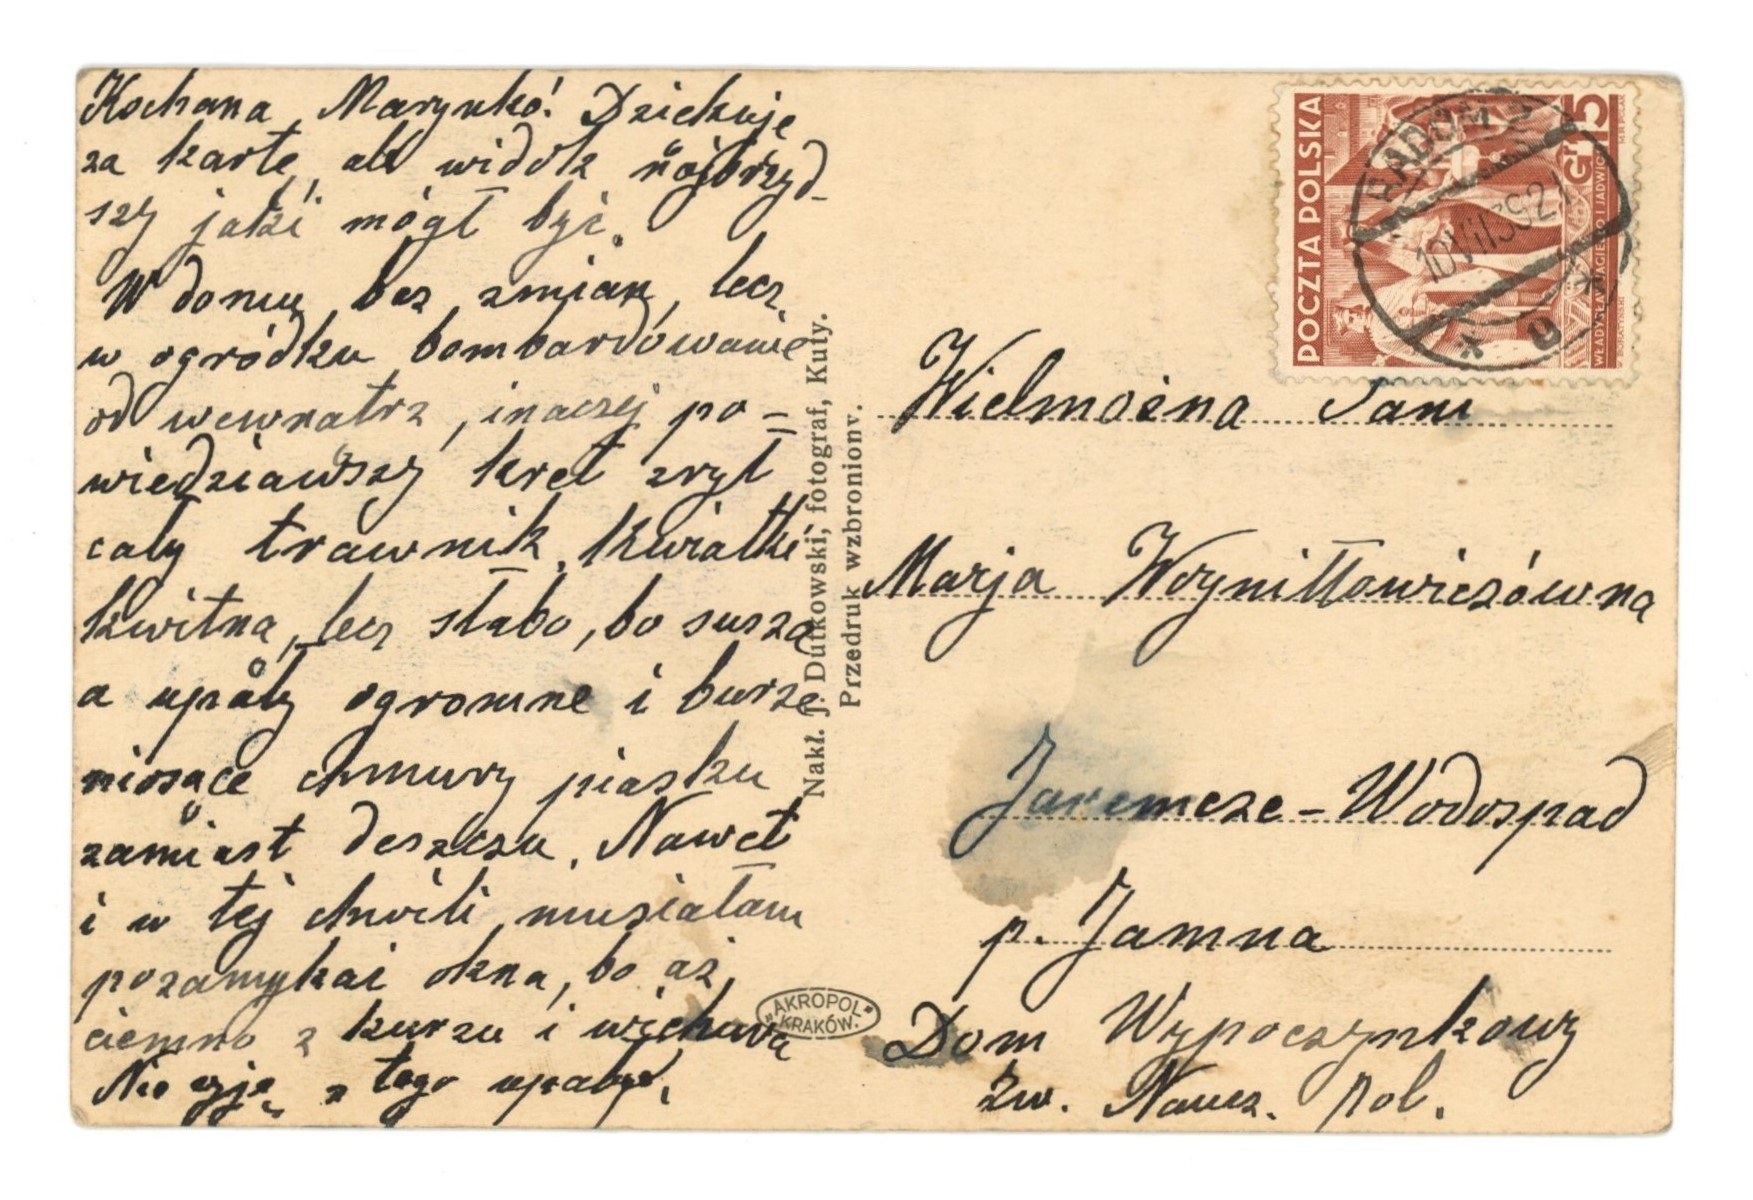 Kochana Marynko! Dziękuję
za kartę, ale widok najbrzyd-
szy jaki mógł być.
W domu bez zmian, lecz
w ogródku bombardowanie
od wewnatrz, inaczej po=
wiedziawszy kret zrył
cały trawnik. Kwiatki
kwitną, lecz słabo, bo susza
a upały ogromne i burze
niosące chmury piasku
zamiast deszczu. Nawet
i w tej chwili musiałam
pozamykać okna, bo aż
ciemno z kurzu i wichura
Nie żyję z tego upału.
Nakł. J. Dutkowski, fotograf, Kuty.
Przedruk wzbroniony.
"AKROPOL"
KRAKÓW.
POCZTA POLSKA
15
Gr
WŁADYSŁAW JAGIEŁŁO I JADWIGA
RADOM 2
10 VII 39 21
Wielmożna Pani
Marja Woyniłłowiczówna
Jaremcze - Wodospad
p. Jamna
Dom Wypoczynkowy
Zw. Naucz. Pol.